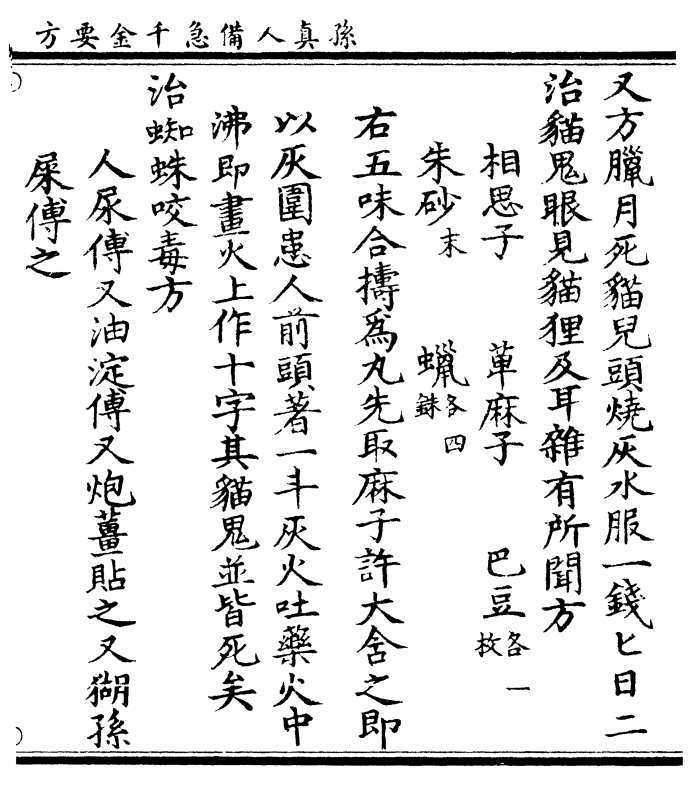 孫真人備急千金要方
又方臘月死貓兒頭燒灰水服一錢匕日二
治貓鬼眼見貓狸及耳雜有所聞方
相思子　萆麻子　巴豆各一枚
朱砂末　蠟各四銖
右五味合擣為丸先取麻子許大含之即
以灰圍患人前頭著一斗灰火吐藥火中
沸即畫火上作十字其貓鬼並皆死矣
治蜘蛛咬毒方
人尿傅又油淀傅又炮薑貼之又猢孫
屎傅之